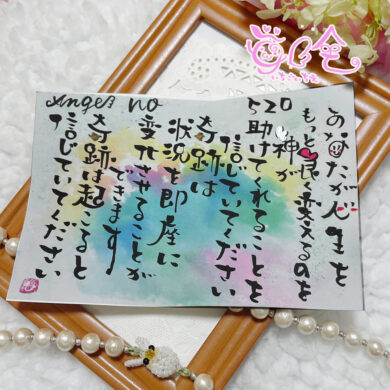 Angel no
520
あなたが人生を
もっと良く変えるのを
神が
助けてくれることを
信じていてください
奇跡は
状況を即座に
変化させることが
できます
奇跡は起こると
信じていてください